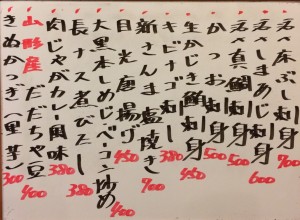 天然床ぶし 700
天然しまあじ刺身 600
天然真鯛刺身 500
かつお刺身 500
生かじき鮪刺し 450
キビナゴ刺し 380
新さんま塩焼き 700
目光唐揚げ 450
大黒本しめじベーコン炒め 400
長ナス煮びたし 380
肉じゃがカレー風味 380
山形産だだちゃ豆 400
きぬかつぎ(里芋) 300